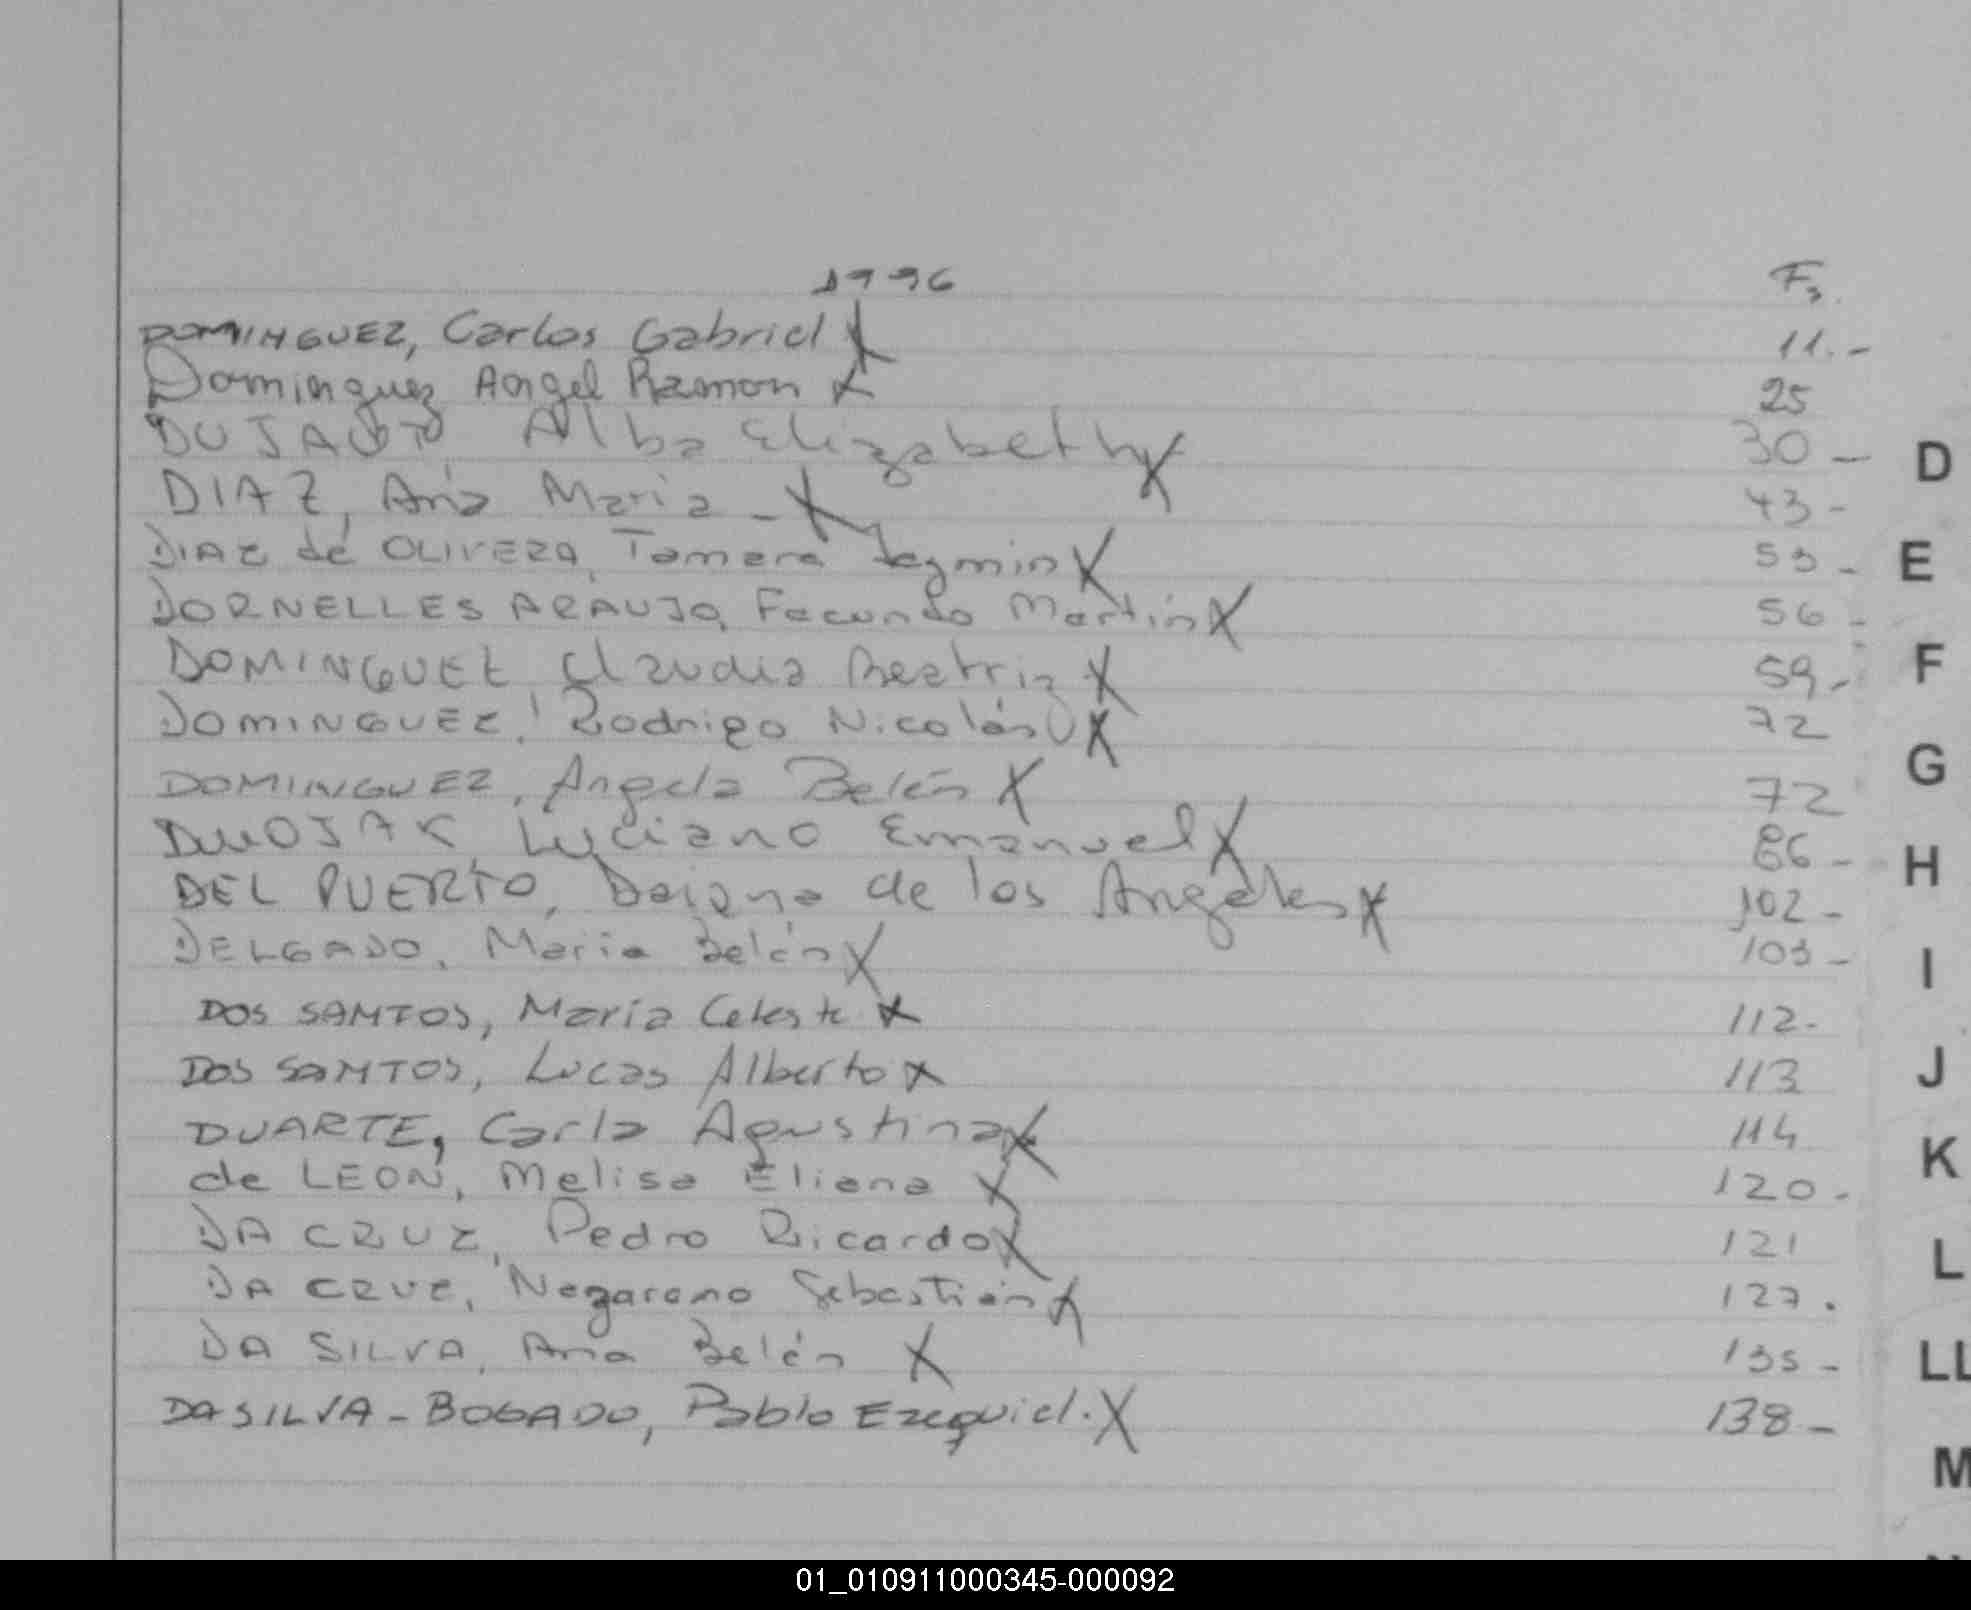 1996 Fs.
DOMINGUEZ, Carlos Gabriel X 11.-
Dominguez Angel Ramon X 25
Alba Elizabeth X 30 - D
DIAZ, Ana Maria - X 43 -
DIAZ de OLIVERA, Tamara Jazmin X 53 - E
DORNELLES ARAUJO, Facundo Martin X 56 -
DOMINGUEZ, Claudia Beatriz X 59 - F
DOMINGUEZ, Rodrigo Nicolás X 72
DOMINGUEZ, Angela Belén X 72 G
Luciano Emanuel X 86 - H
DEL PUERTO, Daiana de los Angeles X 102 -
DELGADO, Maria Belén X 103 - I
DOS SANTOS, María Celeste X 112-
DOS SANTOS, Lucas Alberto X 113 J
DUARTE, Carla Agustina X 114
de LEON, Melisa Eliana X 120 - K
DA CRUZ, Pedro Ricardo X 121 L
DA CRUZ, Nazareno Sebastián X 127.
DA SILVA, Ana Belén X 135 - LL
DA SILVA - BOGADO, Pablo Ezequiel. X 138 -
M
01_010911000345-000092